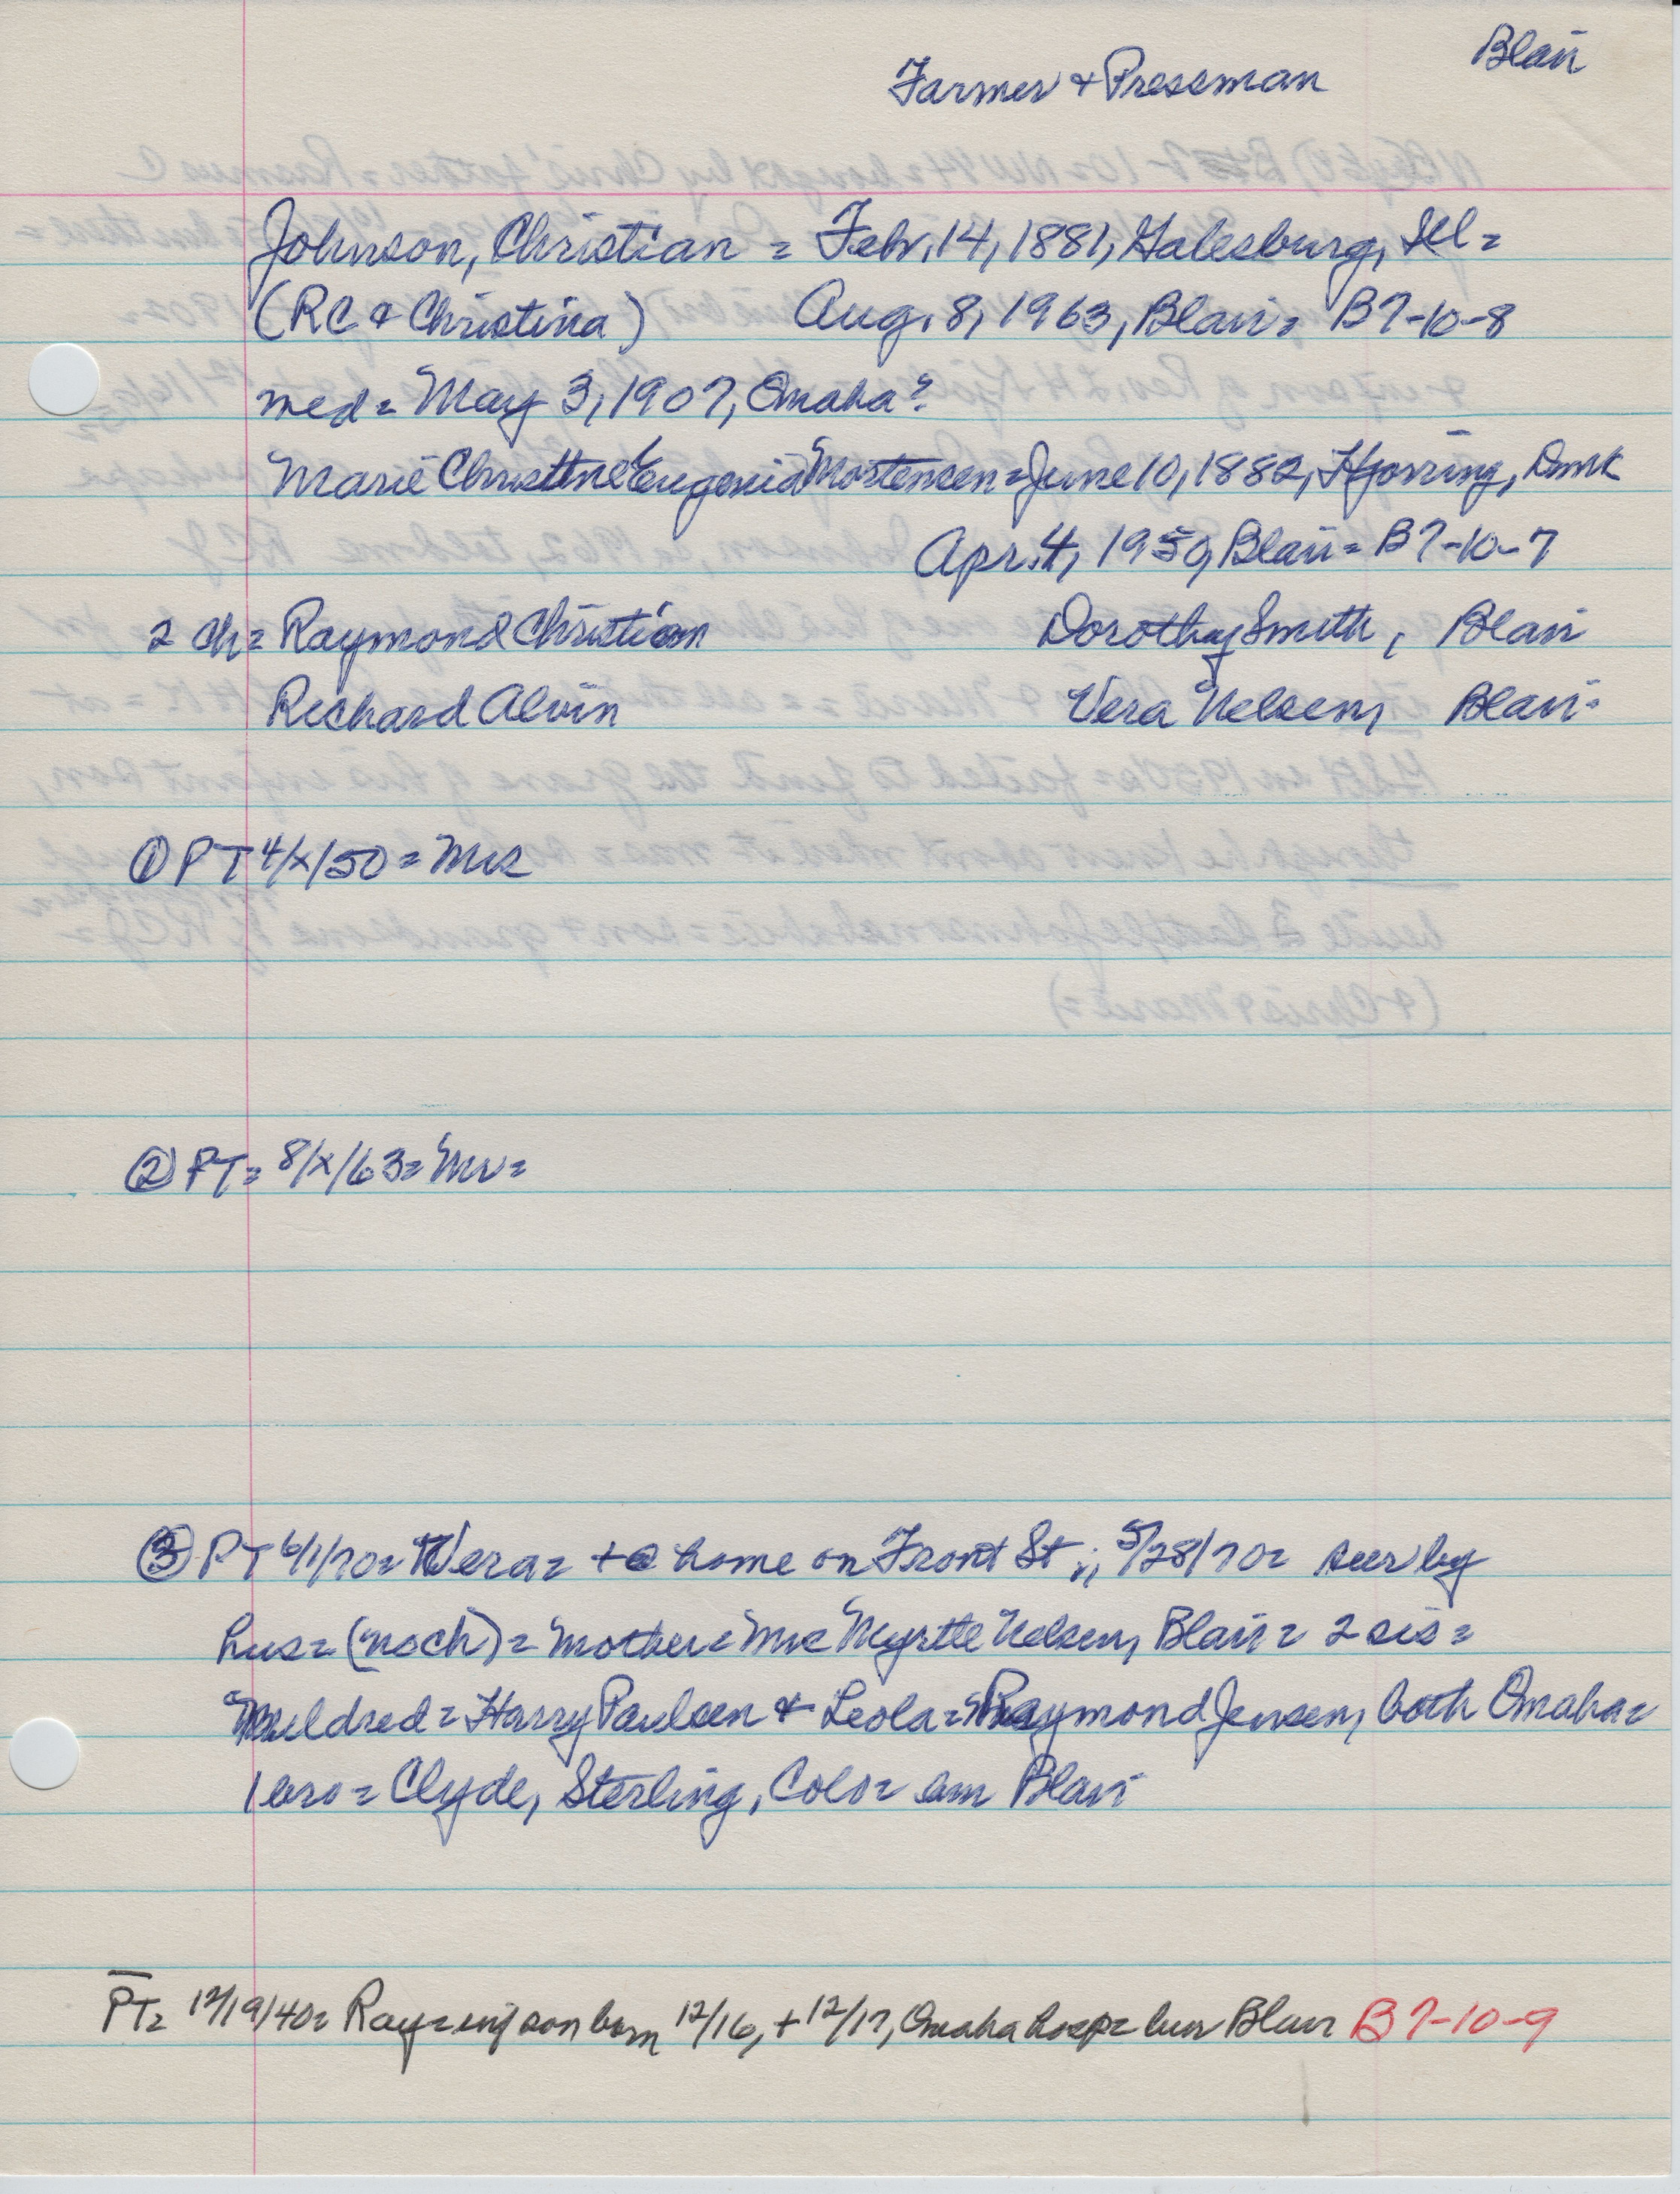 Blair
Farmer & Pressman
Johnson, Christian = Febr. 14, 1881, Galesburg, Ill =
(RC & Christina) Aug. 8, 1963, Blair = B7-10-8
med = May 3, 1907, Omaha?
Marie Christine Eugenia Mortensen = June 10, 1882, Hjorring, Dmk
Apr. 4, 1950, Blair = B7-10-7
2 ch = Raymond Christian Dorothy Smith, Blair
Richard Alvin Vera Nelsen, Blair
① PT 4/x/50 = Mrs
② PT = 8/x/63 = Mr =
③ PT 6/1/70 = Vera = + @ home on Front St ;, 5/28/70 = sur by
hus = (noch) = mother = Mrs Myrtle Nelsen, Blair = 2 sis =
Mildred = Harry Paulsen & Leola = Raymond Jensen, both Omaha =
1 bro = Clyde, Sterling, Colo =  Blair
PT = 12/19/40 = Ray = inf son born 12/16, + 12/17, Omaha hosp = bur Blair B7-10-9